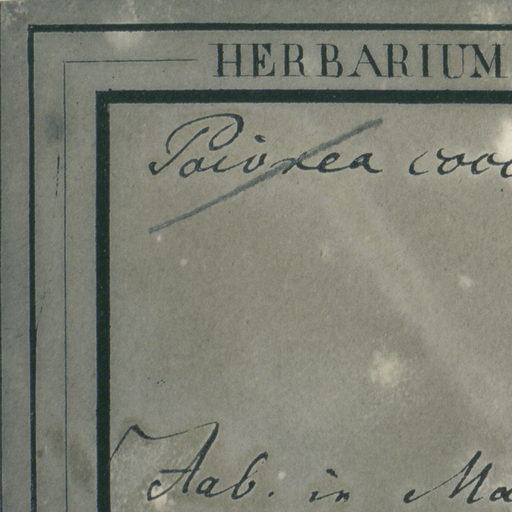 HERBARIUM
Poivrea cocc
Hab. in Ma